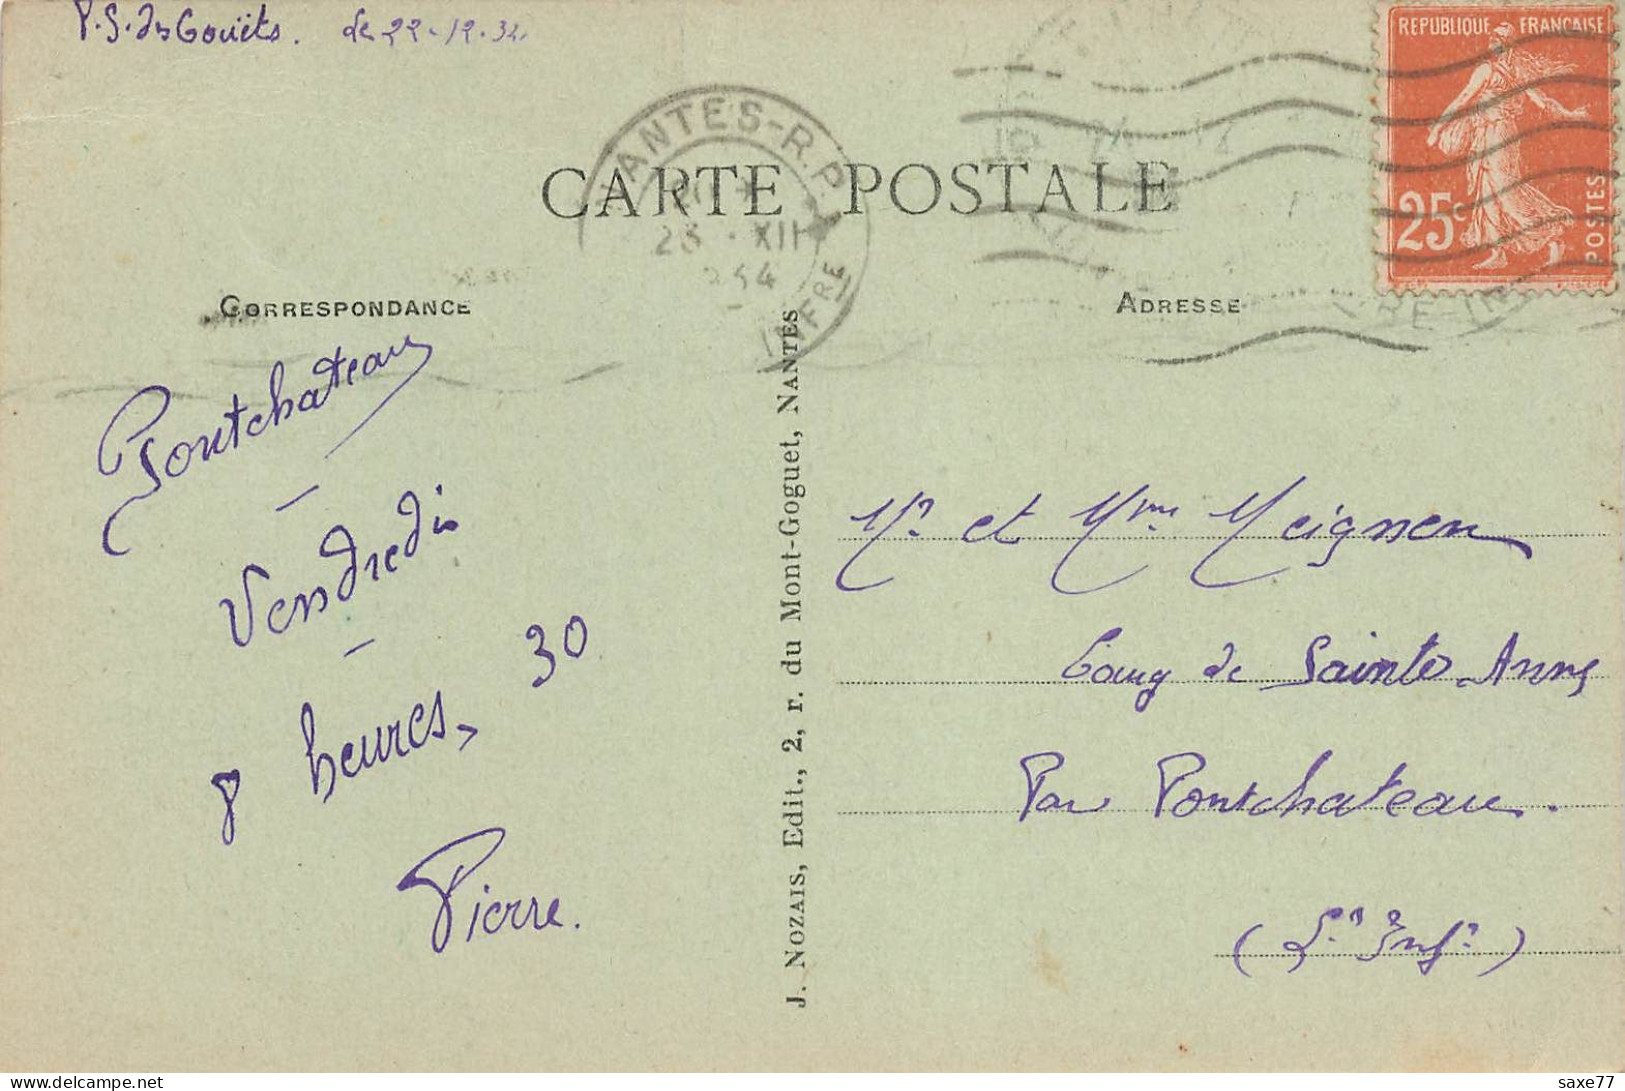 P.S. des Gouëts. le 22-12-34
RÉPUBLIQUE FRANÇAISE
25c
POSTES
NANTES-R.P.
23 · XII
34
INFRE
CARTE POSTALE
CORRESPONDANCE
ADRESSE
Pontchateau
—
Vendredi
—
8 heures, 30
Pierre.
J. NOZAIS, Edit., 2, r. du Mont-Goguet, NANTES
Mr et Mme Meignen
Bourg de Sainte-Anne
Par Pontchateau.
(L.re Infre)
saxe77